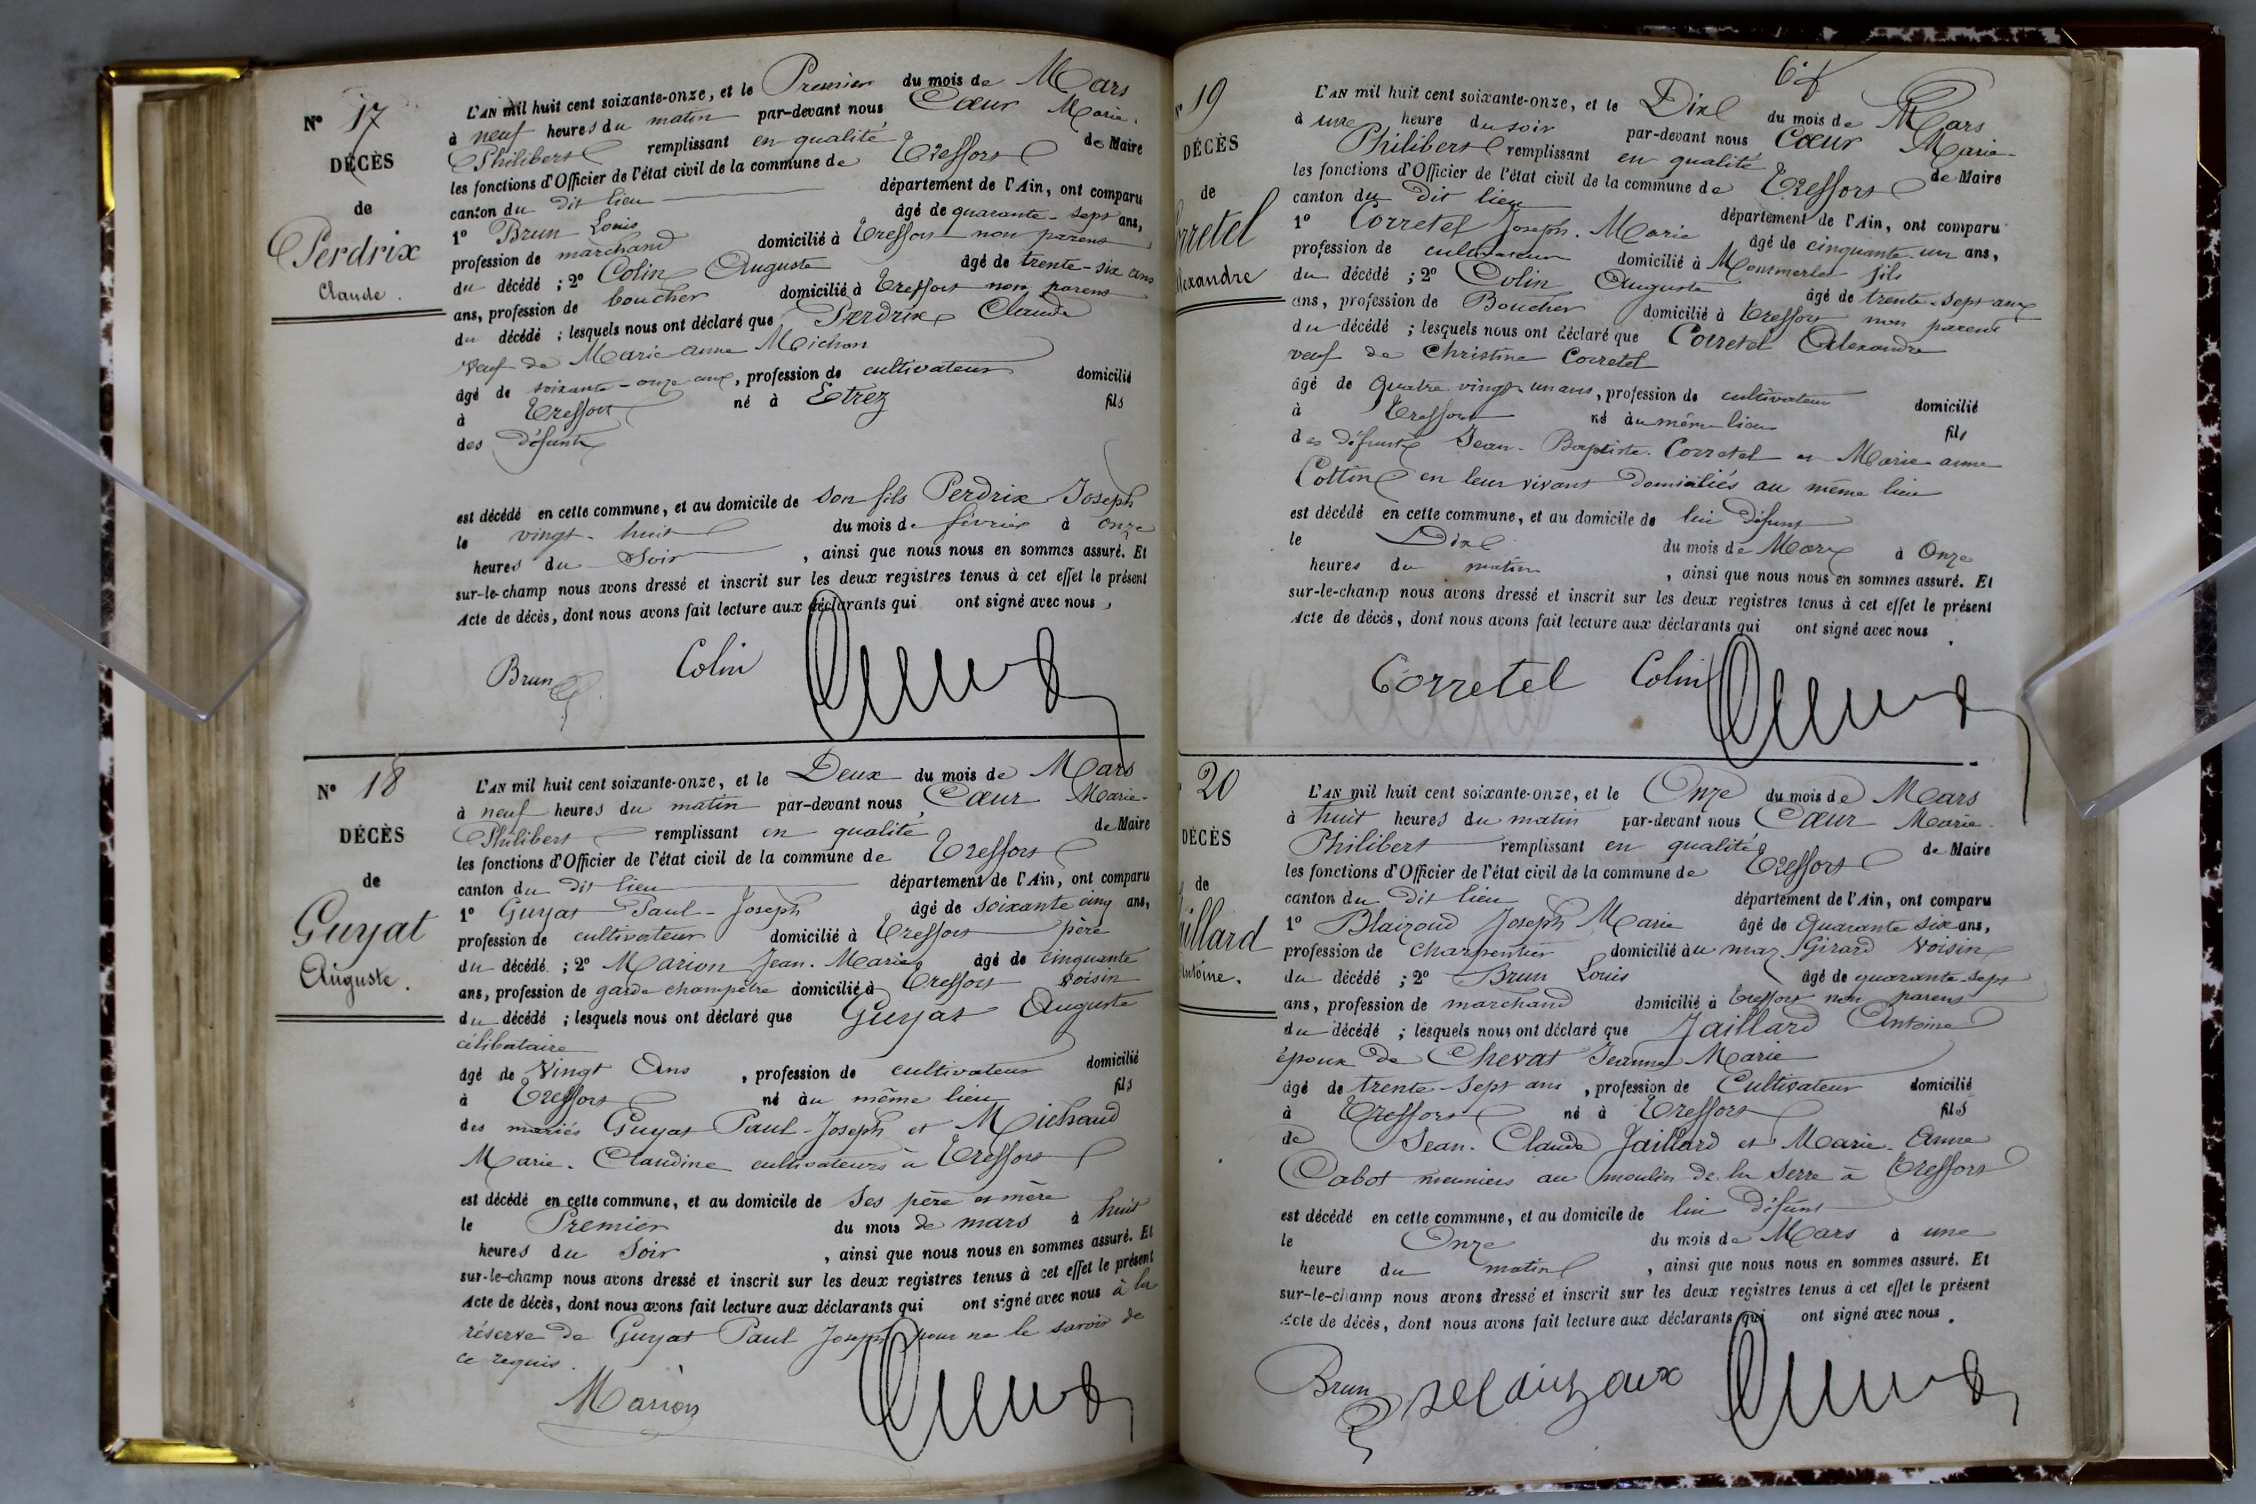 N° 17
DÉCÈS
de
Perdrix
Claude.
L'AN mil huit cent soixante-onze, et le Premier du mois de Mars
à neuf heures du matin par-devant nous Cœur Marie-
Philibert remplissant en qualité de Maire
les fonctions d'Officier de l'état civil de la commune de Treffort
canton du dit lieu département de l'Ain, ont comparu
1° Brun Louis âgé de quarante-sept ans,
profession de marchand domicilié à Treffort non parent
du décédé ; 2° Colin Auguste âgé de trente-six ans
ans, profession de boucher domicilié à Treffort non parent
du décédé ; lesquels nous ont déclaré que Perdrix Claude
veuf de Marie anne Michon
âgé de soixante-onze ans, profession de cultivateur domicilié
à Treffort né à Etrez fils
des défunts
est décédé en cette commune, et au domicile de son fils Perdrix Joseph
le vingt-huit du mois de février à onze
heures du Soir, ainsi que nous nous en sommes assuré. Et
sur-le-champ nous avons dressé et inscrit sur les deux registres tenus à cet effet le présent
Acte de décès, dont nous avons fait lecture aux déclarants qui ont signé avec nous,
Brun Colin
N° 18
DÉCÈS
de
Guyat
Auguste.
L'AN mil huit cent soixante-onze, et le Deux du mois de Mars
à neuf heures du matin par-devant nous Cœur Marie-
Philibert remplissant en qualité de Maire
les fonctions d'Officier de l'état civil de la commune de Treffort
canton du dit lieu département de l'Ain, ont comparu
1° Guyat Paul-Joseph âgé de soixante cinq ans,
profession de cultivateur domicilié à Treffort père
du décédé ; 2° Marion Jean-Marie âgé de cinquante
ans, profession de garde champêtre domicilié à Treffort voisin
du décédé ; lesquels nous ont déclaré que Guyat Auguste
célibataire
âgé de vingt Ans, profession de cultivateur domicilié
à Treffort né au même lieu fils
des mariés Guyat Paul-Joseph et Michaud
Marie-Claudine cultivateurs à Treffort
est décédé en cette commune, et au domicile de Ses père et mère
le Premier du mois de mars à huit
heures du Soir, ainsi que nous nous en sommes assuré. Et
sur-le-champ nous avons dressé et inscrit sur les deux registres tenus à cet effet le présent
Acte de décès, dont nous avons fait lecture aux déclarants qui ont signé avec nous à la
réserve de Guyat Paul Joseph pour ne le savoir de
ce requis.
Marion
19
DÉCÈS
de
rretel
lexandre
L'AN mil huit cent soixante-onze, et le Dix du mois de Mars
à une heure du soir par-devant nous Cœur Marie-
Philibert remplissant en qualité de Maire
les fonctions d'Officier de l'état civil de la commune de Treffort
canton du dit lieu département de l'Ain, ont comparu
1° Corretel Joseph-Marie âgé de cinquante-un ans,
profession de cultivateur domicilié à Montmerle fils
du décédé ; 2° Colin Auguste âgé de trente-sept ans
ans, profession de Boucher domicilié à Treffort non parent
du décédé ; lesquels nous ont déclaré que Corretel Alexandre
veuf de Christine Corretel
âgé de Quatre vingt-un ans, profession de cultivateur domicilié
à Treffort né au même lieu fils
des défunts Jean-Baptiste Corretel et Marie anne
Cottin en leur vivant domiciliés au même lieu
est décédé en cette commune, et au domicile de lui défunt
le Dix du mois de Mars à Onze
heures du matin, ainsi que nous nous en sommes assuré. Et
sur-le-champ nous avons dressé et inscrit sur les deux registres tenus à cet effet le présent
Acte de décès, dont nous avons fait lecture aux déclarants qui ont signé avec nous.
Corretel Colin
20
DÉCÈS
de
illard
Antoine.
L'AN mil huit cent soixante-onze, et le Onze du mois de Mars
à huit heures du matin par-devant nous Cœur Marie-
Philibert remplissant en qualité de Maire
les fonctions d'Officier de l'état civil de la commune de Treffort
canton du dit lieu département de l'Ain, ont comparu
1° Blaizoud Joseph Marie âgé de Quarante six ans,
profession de Charpentier domicilié au maz Girard voisin
du décédé ; 2° Brun Louis âgé de quarante sept
ans, profession de marchand domicilié à Treffort non parent
du décédé ; lesquels nous ont déclaré que Jaillard Antoine
époux de Chevat Jeanne Marie
âgé de trente-sept ans, profession de Cultivateur domicilié
à Treffort né à Treffort fils
de Jean-Claude Jaillard et Marie-Anne
Cabot meuniers au moulin de la Serre à Treffort
est décédé en cette commune, et au domicile de lui défunt
le Onze du mois de Mars à une
heure du matin, ainsi que nous nous en sommes assuré. Et
sur-le-champ nous avons dressé et inscrit sur les deux registres tenus à cet effet le présent
Acte de décès, dont nous avons fait lecture aux déclarants qui ont signé avec nous.
Brun